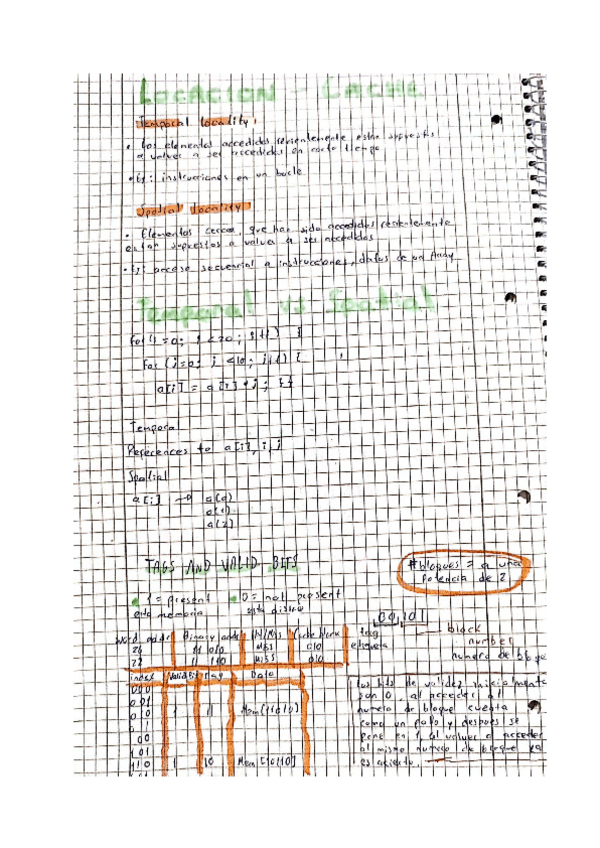 LOCACION - CACHE
Temporal locality:
• Los elementos accedidos recientemente están supuestos
a volver a ser accedidos en corto tiempo
• Ej: instrucciones en un bucle
Spatial locality
• Elementos cerca, que han sido accedidos recientemente
están supuestos a volver a ser accedidos
• Ej: acceso secuencial a instrucciones, datos de un Array
Temporal vs Spatial
for (i=0; i<20; i++) {
for (j=0; j<10; j++) {
a[i] = a[i]*j; }}
Tempora
References to a[i], i, j
Spatial
a[i] → a(0)
a(1)
a(2)
TAGS AND VALID BITS
#bloques = a una
potencia de 2
1 = present 0 = not present
está memoria está disco
Word addr Binary addr Hit/Miss Cache block
26 11 010 Miss 010
22 Miss
tag
etiqueta
block
number
numero de bloque
index Valid Bit Tag Data
000
001
010 1 11 Mem[11010]
101
110 1 10 Mem[10110]
los bits de validez inicialmente
son 0, al acceder al
numero de bloque cuenta
como un fallo y después se
pone en 1, al volver a acceder
al mismo numero de bloque ya
es acierto.